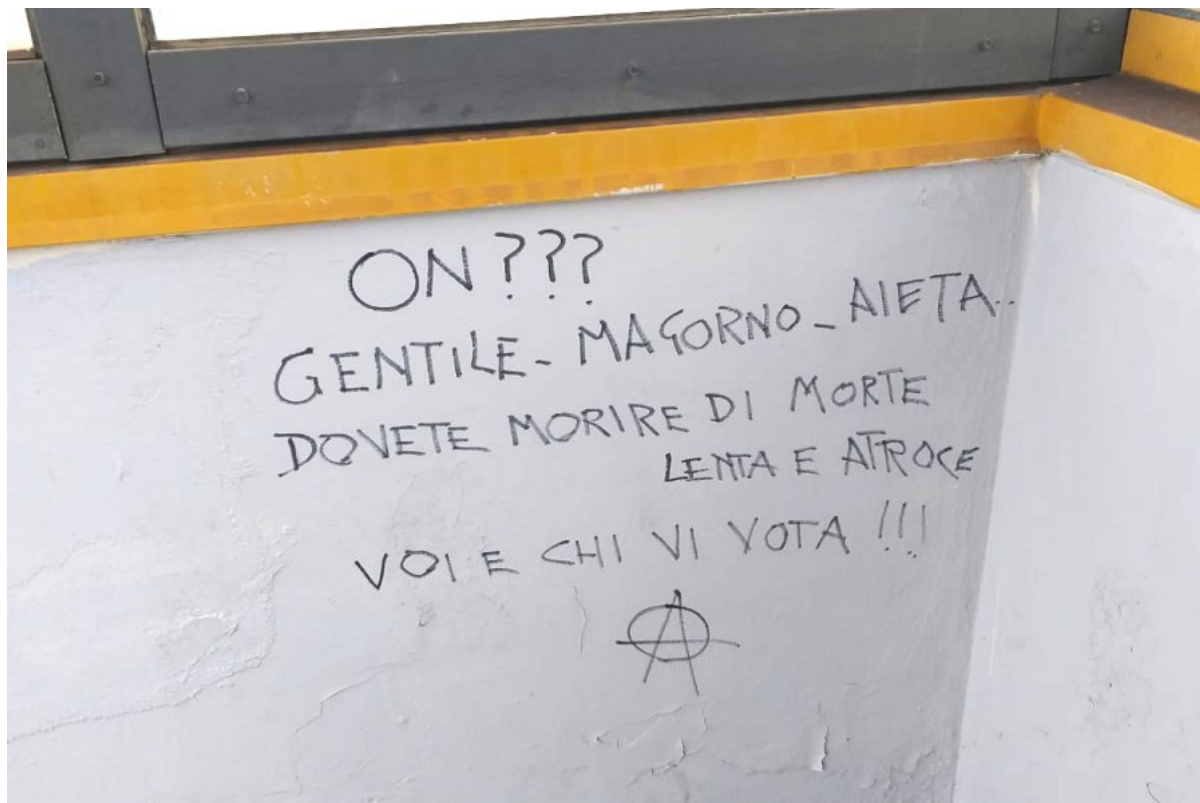 ON ???
GENTILE - MAGORNO - AIETA..
DOVETE MORIRE DI MORTE
LENTA E ATROCE
VOI E CHI VI VOTA !!!